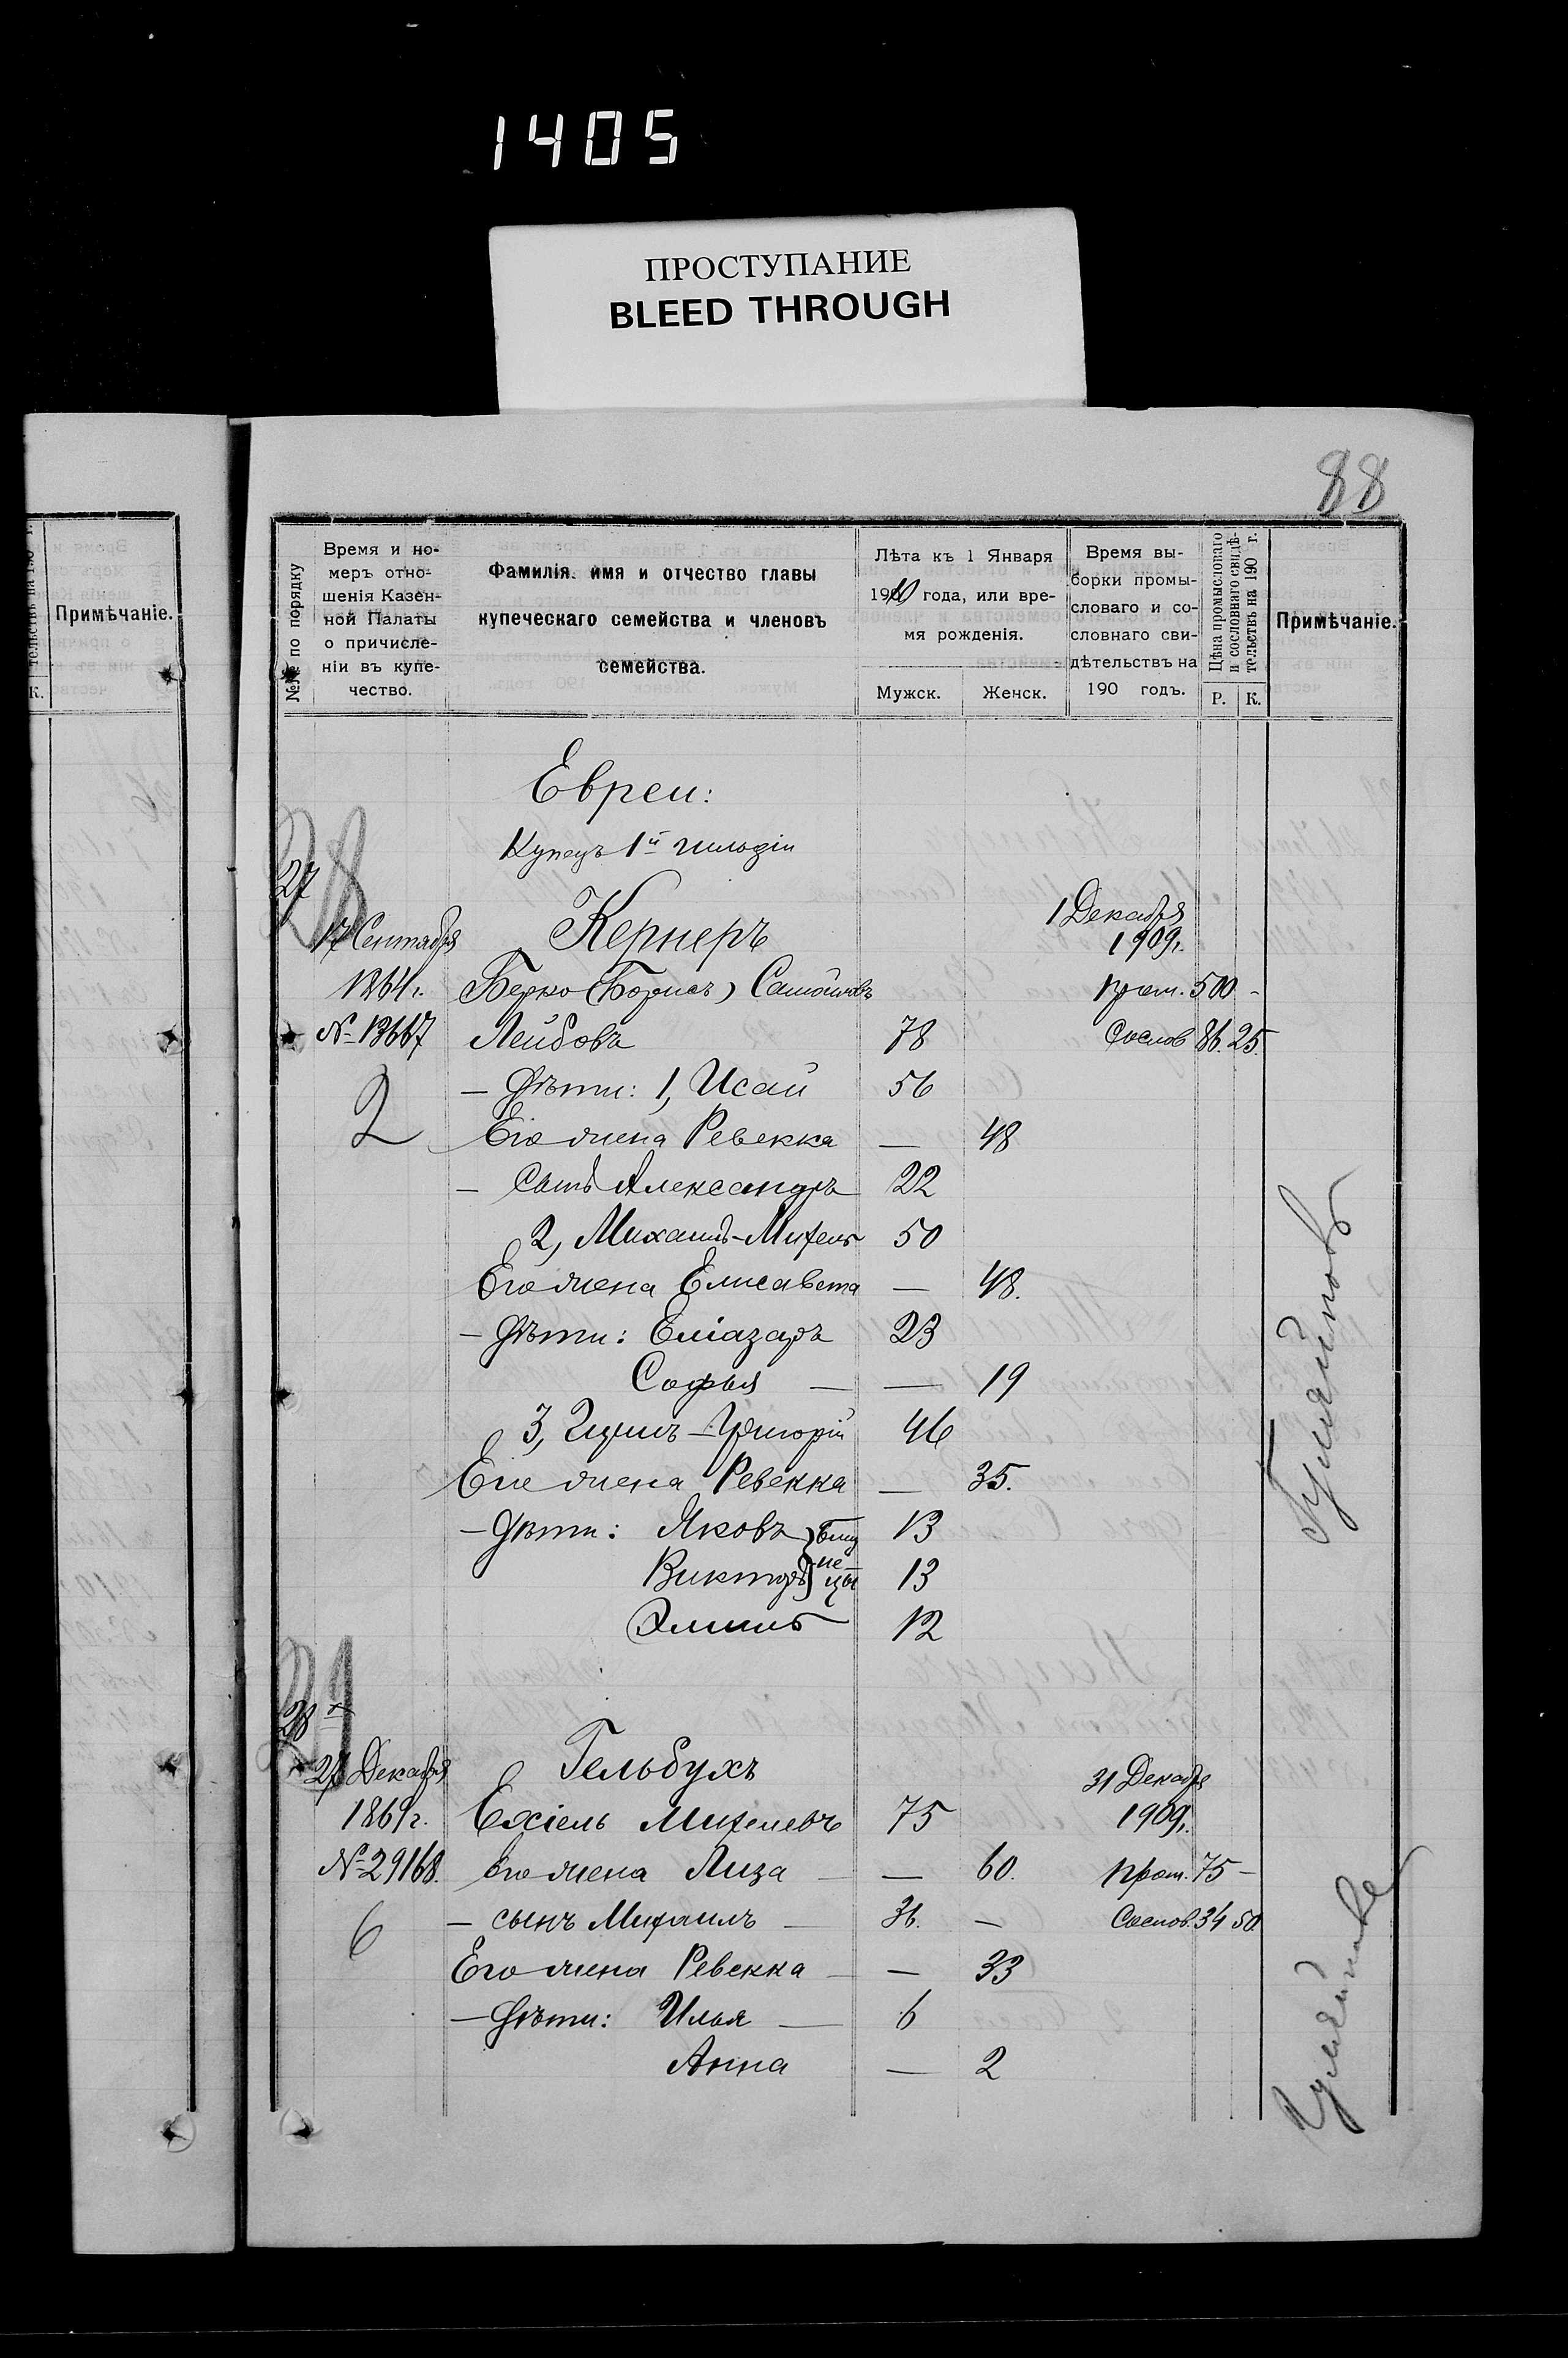 1405
ПРОСТУПАНИЕ
BLEED THROUGH
88
Примѣчаніе.
К.
№№ по порядку
Время и но-
меръ отно-
шенія Казен-
ной Палаты
о причисле-
ніи въ купе-
чество.
Фамилія, имя и отчество главы
купеческаго семейства и членовъ
семейства.
Лѣта къ 1 Января
1910 года, или вре-
мя рожденія.
Мужск. Женск.
Время вы-
борки промы-
словаго и со-
словнаго сви-
дѣтельствъ на
190 годъ.
Цѣна промысловаго
и сословнаго свидѣ-
тельствъ на 190 г.
Р. К.
Примѣчаніе.
Евреи:
Купецъ 1й гильдіи
27 28
17 Сентября Кернеръ 1 Декабря
1909г.
1864г. Берко (Борисъ) пром. 500 -
№ 13667 Лейбовъ 78 Сослов 86. 25.
2
— Дѣти: 1, Исай 56
Его жена Ревекка — 48
— сынъ Александръ 22
2, Михаилъ-Михель 50
Его жена Елисавета — 48.
— Дѣти: Еліазаръ 23
Софья — — 19
3, Гиршъ-Григорій 46
Его жена Ревекка — 35.
— Дѣти: Яковъ } близ 13
Викторъ } не-цы 13
Эмиль 12
28 29
27 Декабря Гельбухъ 31 Декабря
1869г. Ехіель Михелевъ 75 1909г.
№ 29168. Его жена Лиза — — 60. пром. 75 —
6 — сынъ Михаилъ — 36. — Сослов. 34 50
Его жена Ревекка — — 33
— Дѣти: Илья — 6
Анна — 2